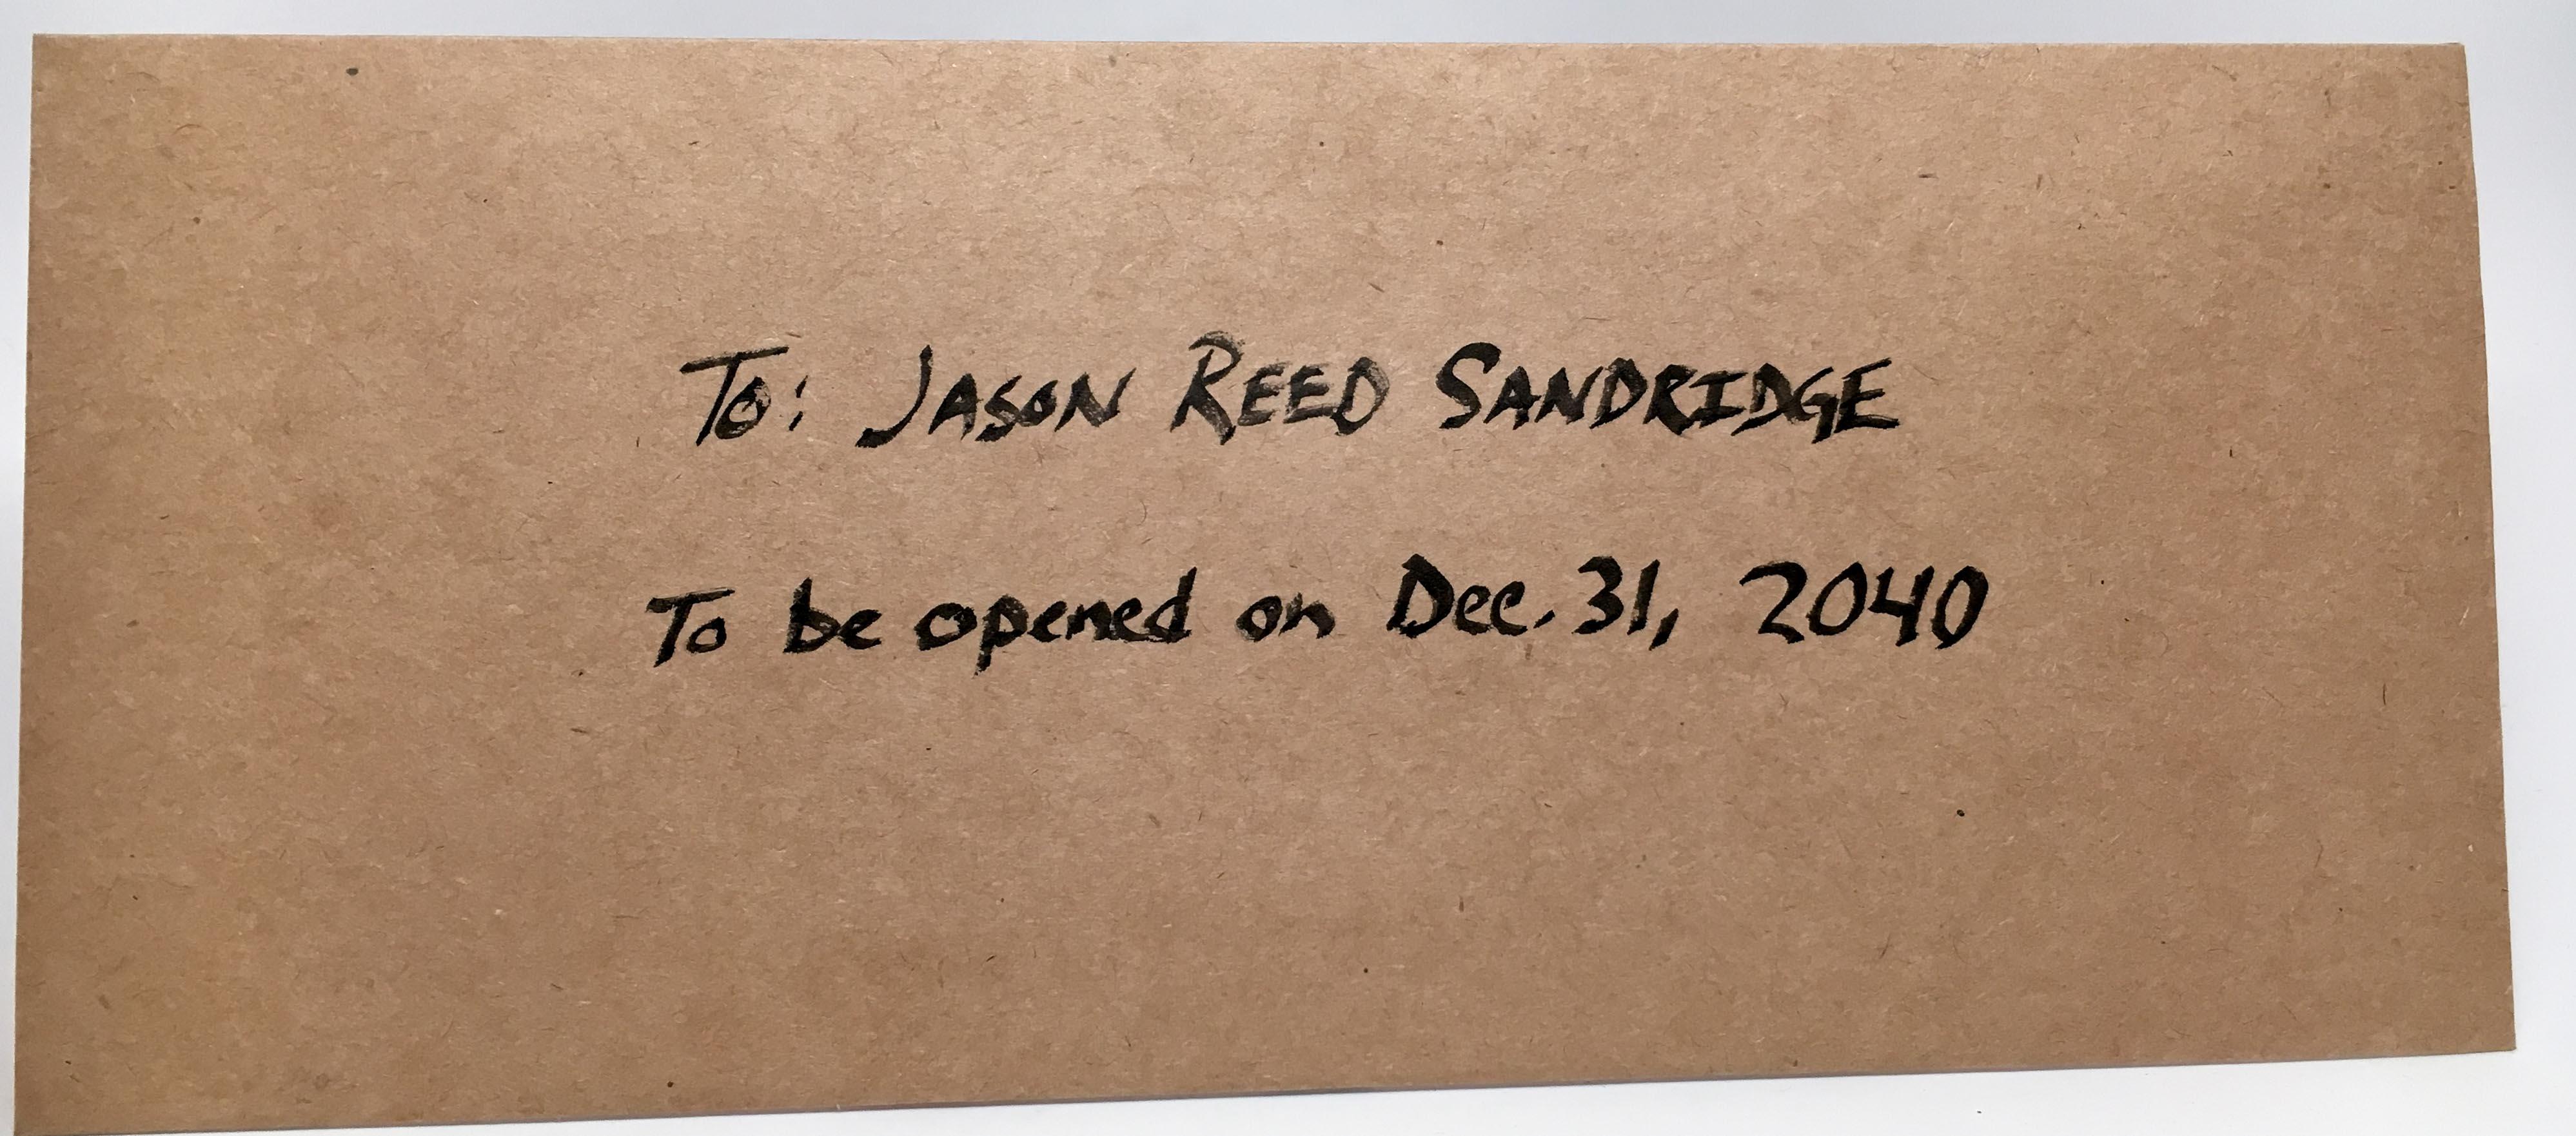 To: JASON REED SANDRIDGE
To be opened on Dec. 31, 2040